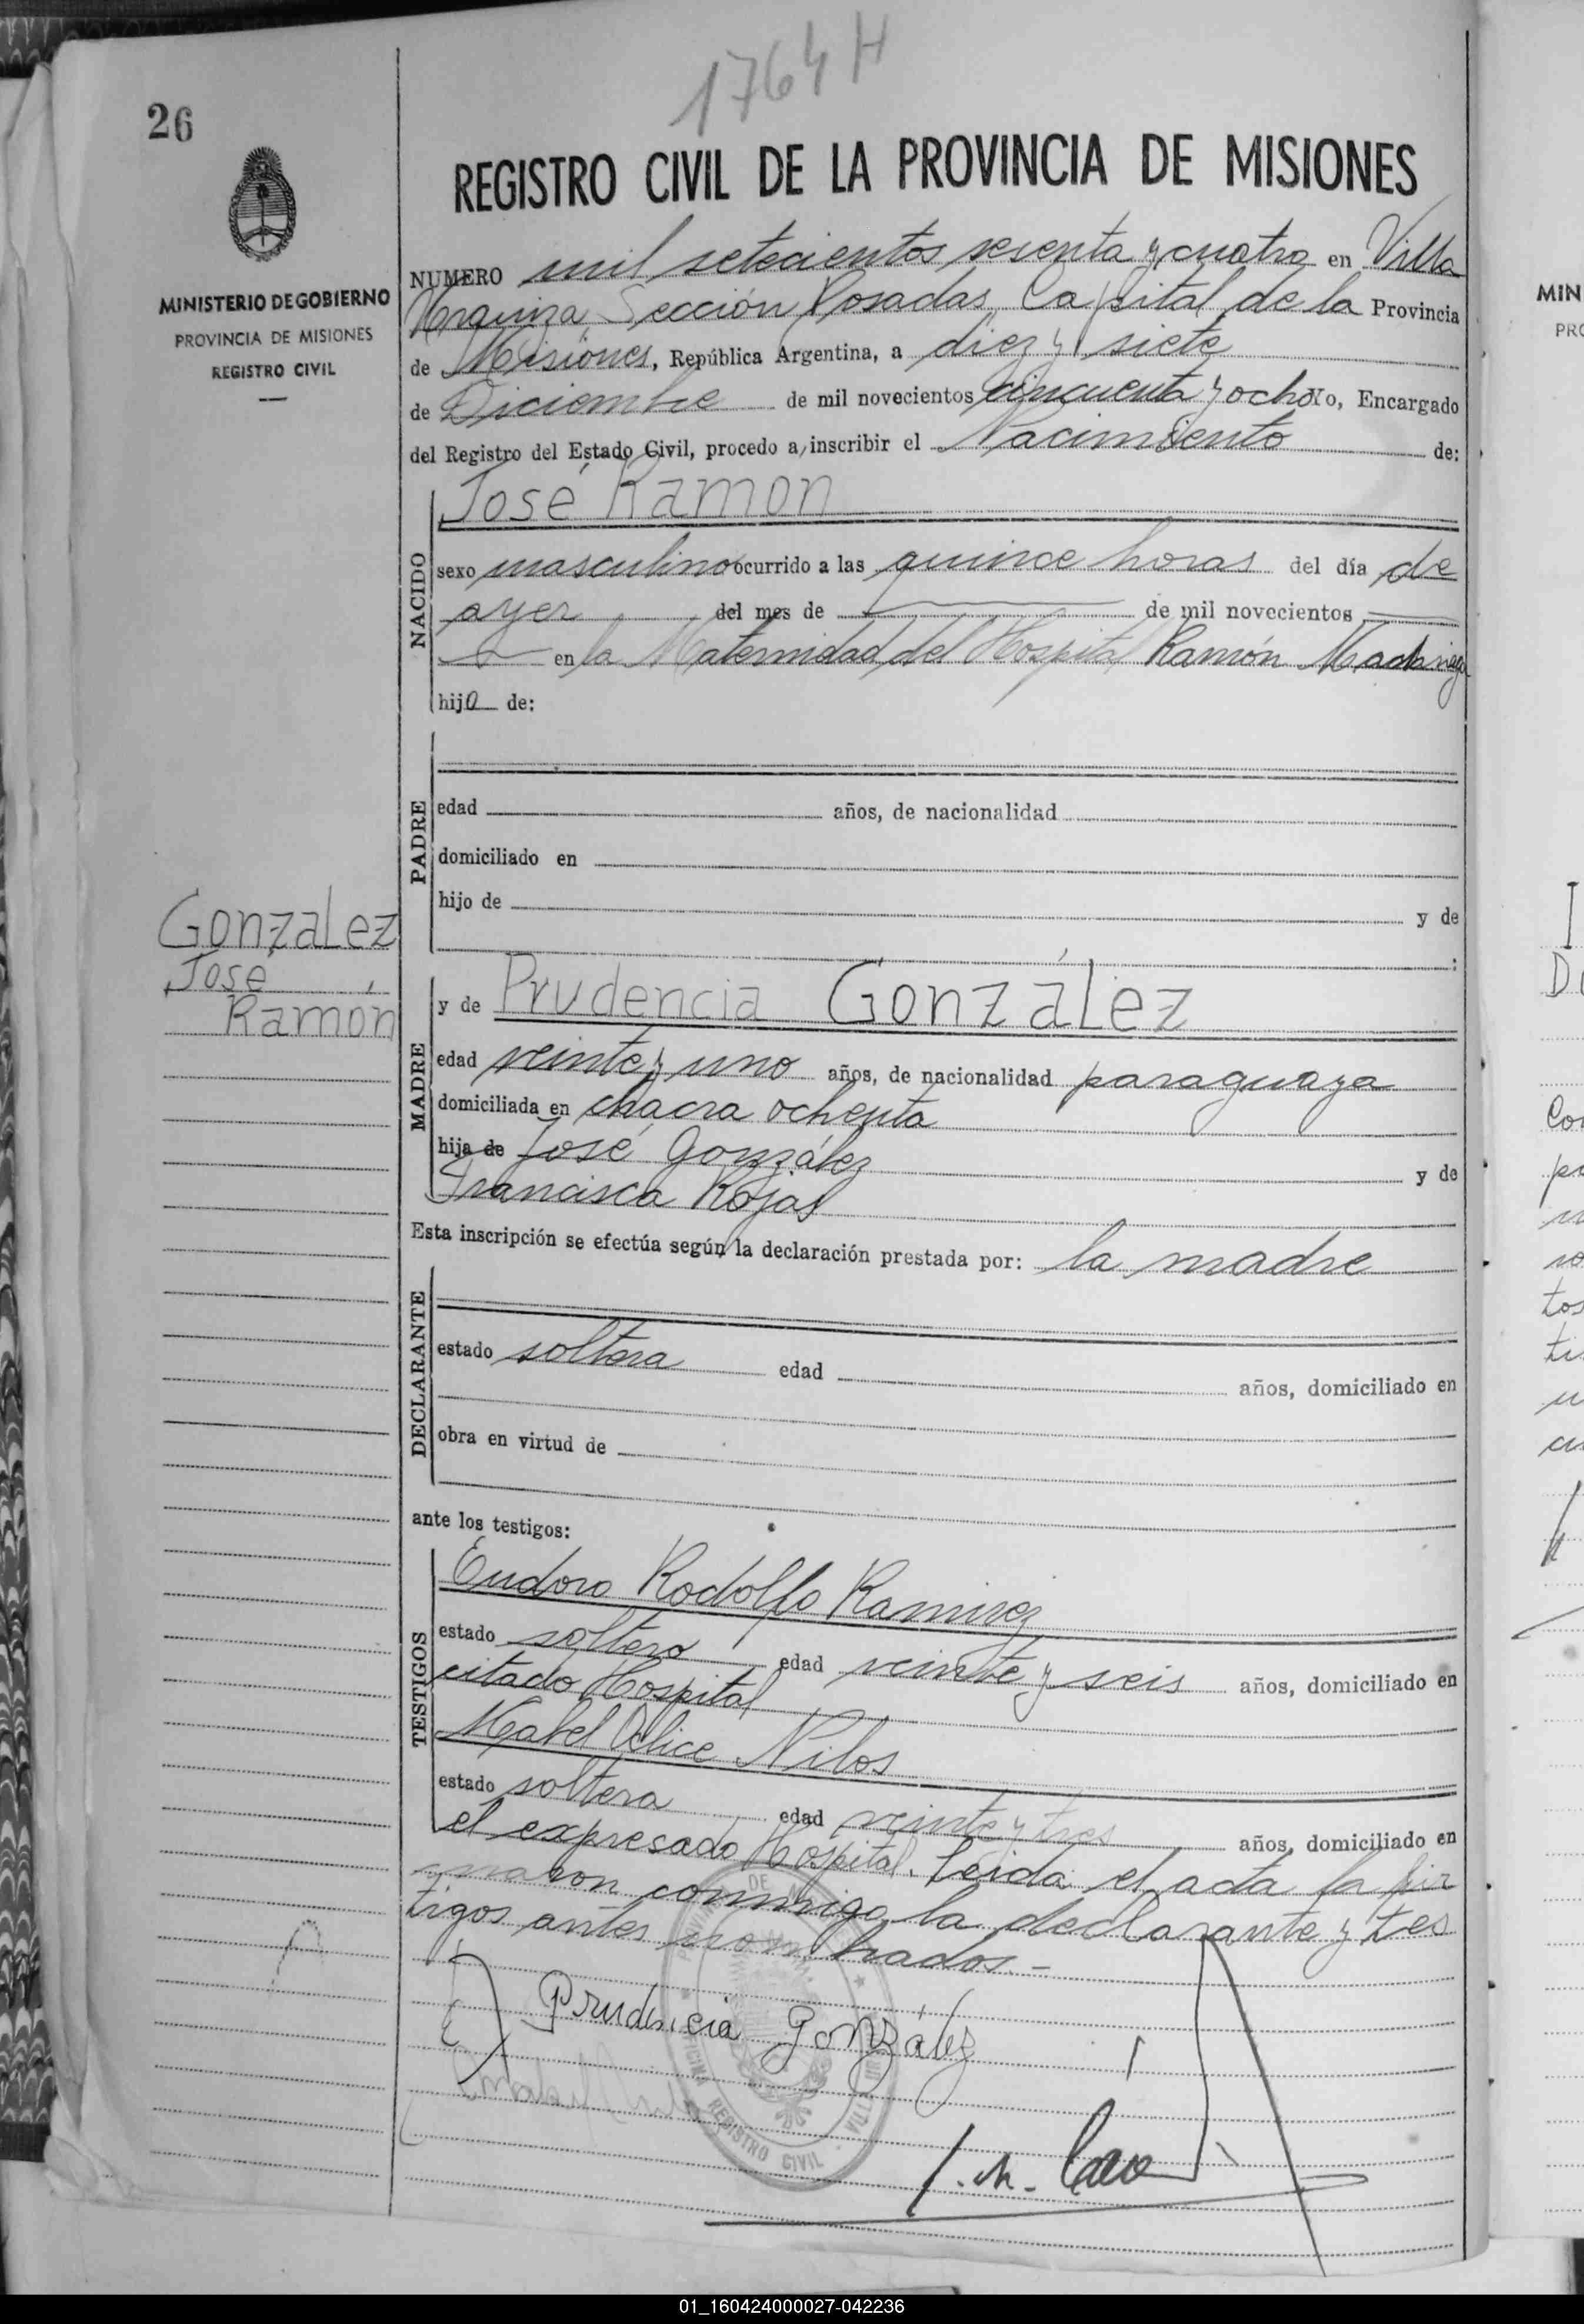 1764 H
26
REGISTRO CIVIL DE LA PROVINCIA DE MISIONES
MINISTERIO DE GOBIERNO
PROVINCIA DE MISIONES
REGISTRO CIVIL
NUMERO mil setecientos sesenta y cuatro en Villa
Urquiza, Sección Posadas, Capital de la Provincia
de Misiones, República Argentina, a diez y siete
de Diciembre de mil novecientos cincuenta y ocho Yo, Encargado
del Registro del Estado Civil, procedo a inscribir el Nacimiento de:
NACIDO
José Ramón
sexo masculino ocurrido a las quince horas del día de
ayer del mes de de mil novecientos
en la Maternidad del Hospital Ramón Madariaga
hijo de:
PADRE
edad años, de nacionalidad
domiciliado en
hijo de y de
;
González
José
Ramón
MADRE
y de Prudencia González
edad veinte y uno años, de nacionalidad paraguaya
domiciliada en chacra ochenta
hija de José González y de
Francisca Rojas
Esta inscripción se efectúa según la declaración prestada por: la madre
DECLARANTE
estado soltera edad años, domiciliado en
obra en virtud de
ante los testigos:
TESTIGOS
Eudoro Rodolfo Ramirez
estado soltero edad veinte y seis años, domiciliado en
citado Hospital
Mabel Alice Nilos
estado soltera edad veinte y tres años, domiciliado en
el expresado Hospital. Leida el acta la fir
maron conmigo la declarante y tes
tigos antes nombrados.-
Prudencia González
REGISTRO CIVIL
MIN
PRO
01_160424000027-042236